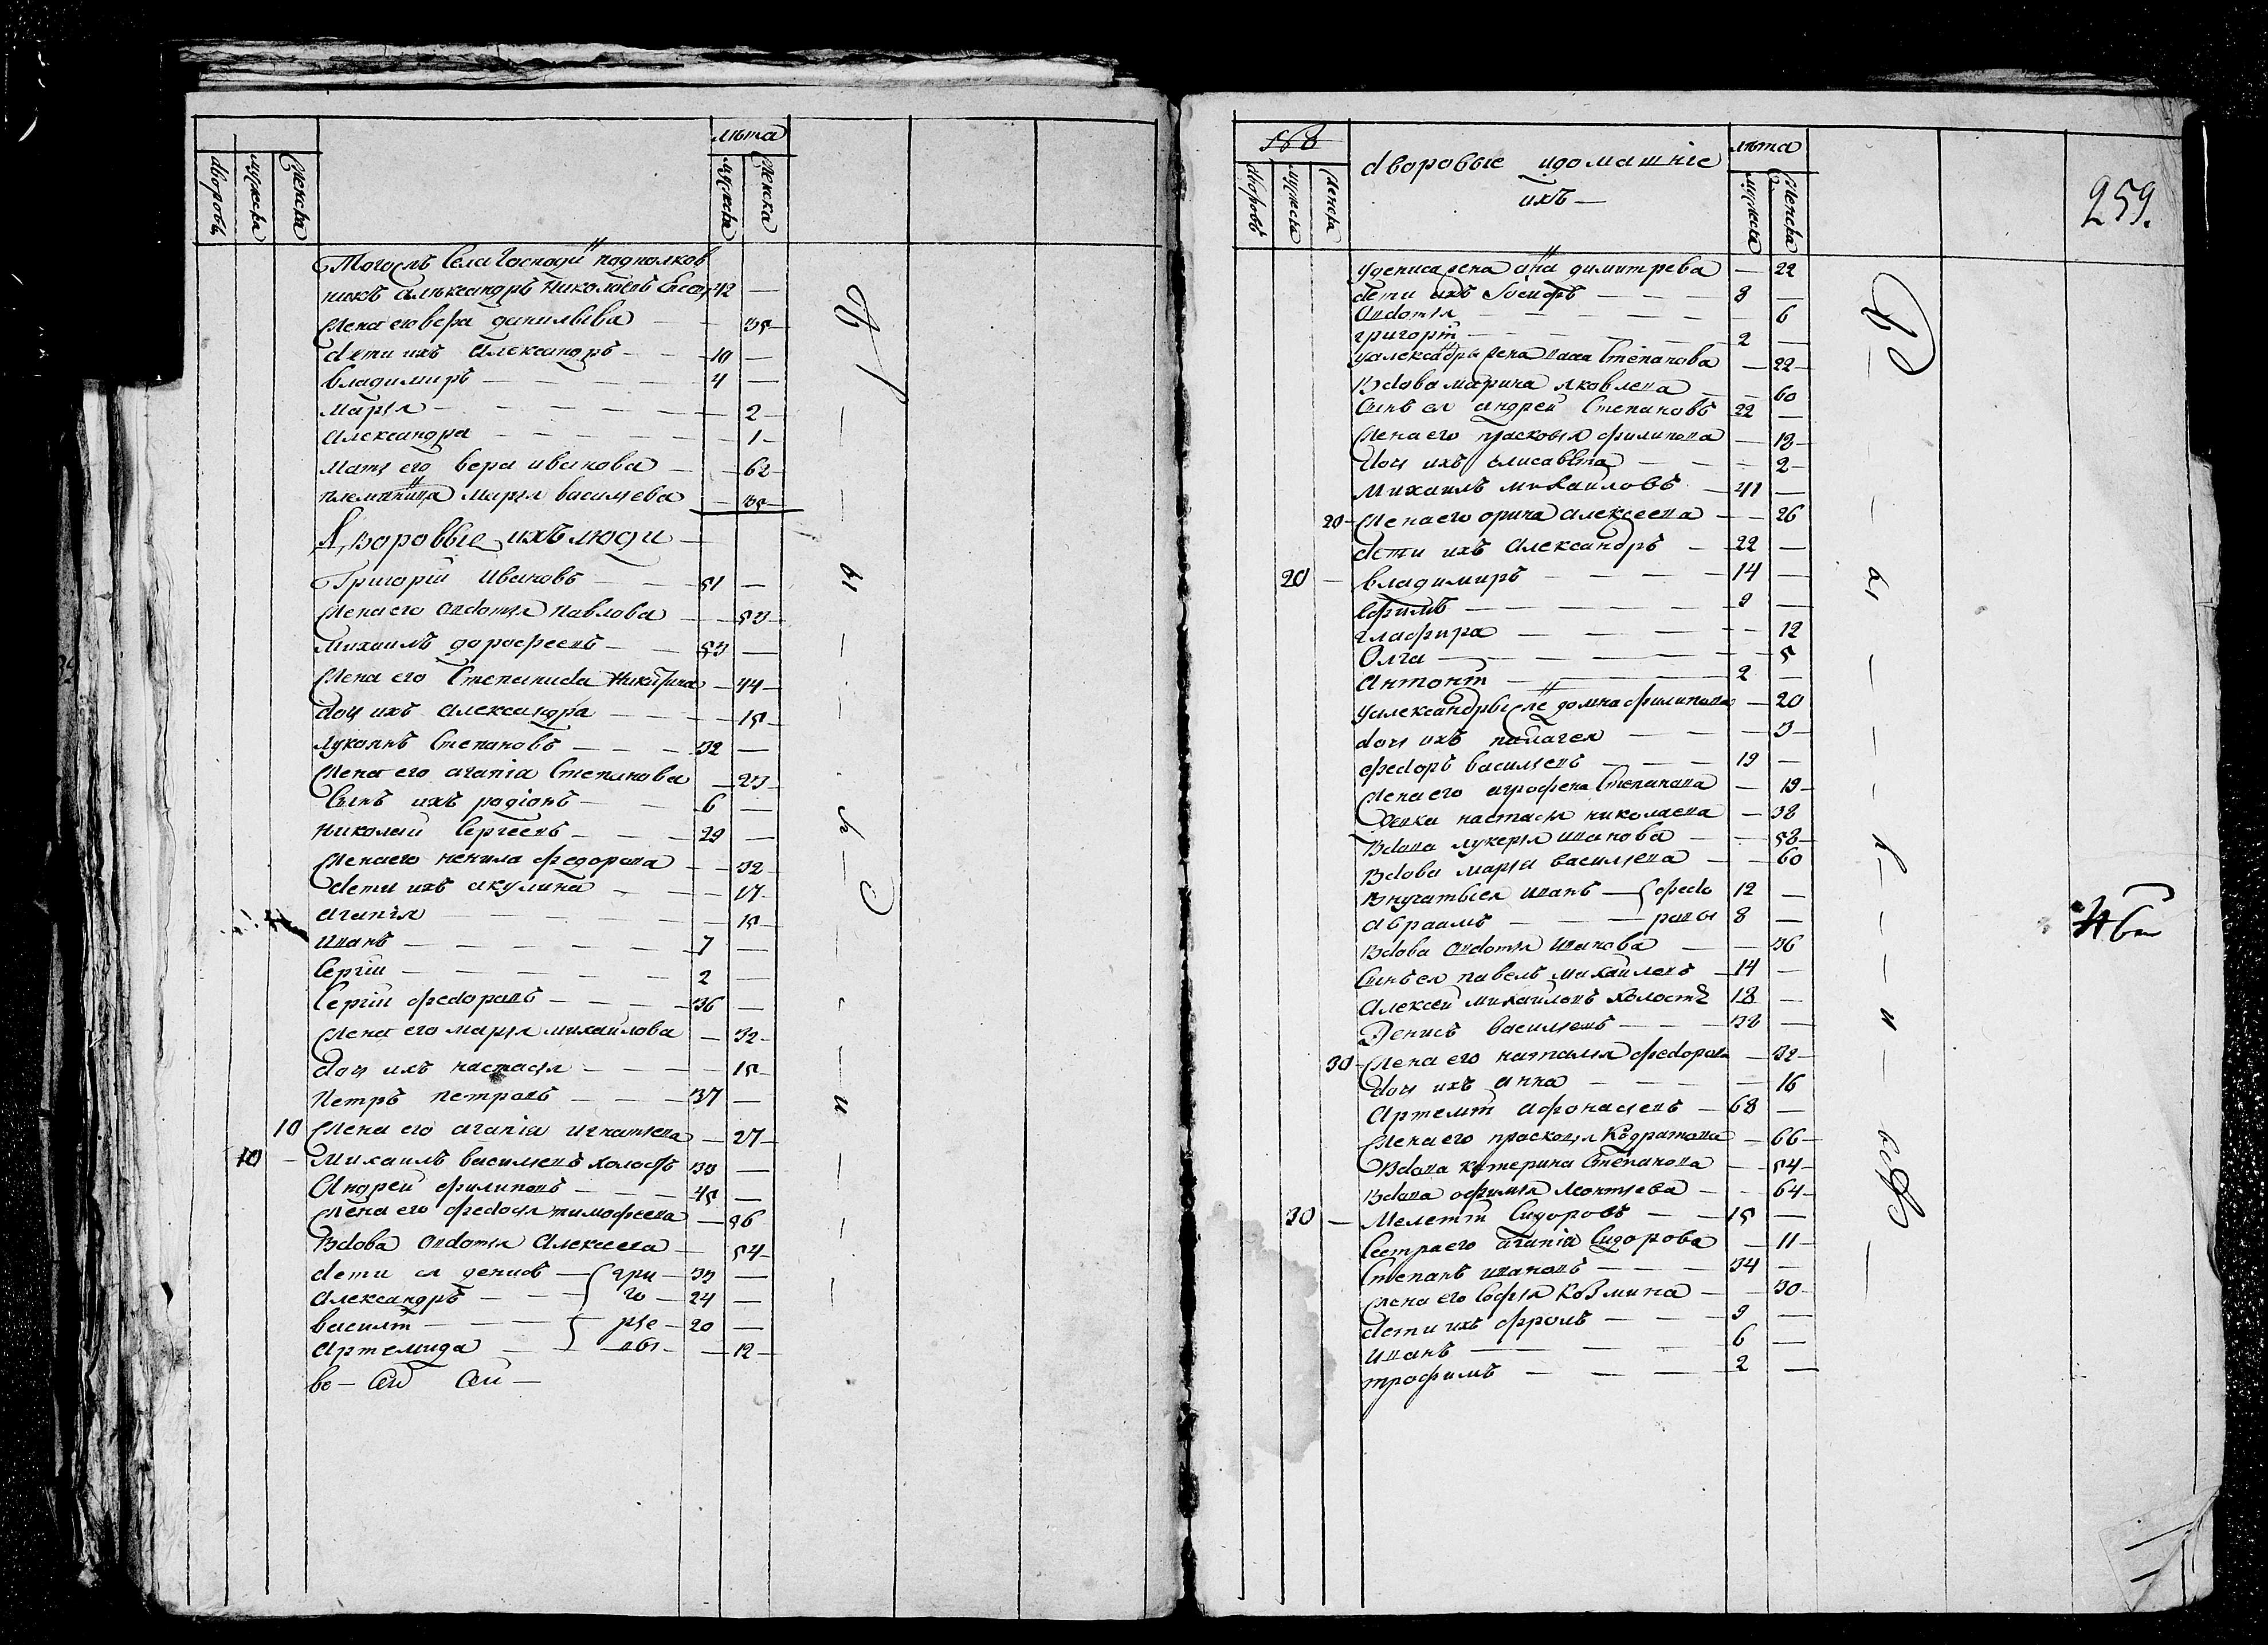 лѣта
дворовъ мужеска женска мужеска женска
Тогожъ Села Господи́нъ подполков
никъ александръ Николаевъ 42 —
Жена его вера данильева — 35
дети ихъ александръ — 10 —
владимиръ — 4 —
марья — 2
александра — 1
мать его вера иванова — 62
племянница марья васильева — 35
Дворовые ихъ люди
Григорий Ивановъ — 51 —
Жена его авдотья павлова — 53
михаилъ дорофеевъ — 53 —
Жена его Степанида Никитина — 44
дочь ихъ александра — 15
лукьянъ Степановъ — 32 —
Жена его агапiа Степанова — 23
Сынъ ихъ родiонъ — 6 —
николай Сергеевъ — 29 —
Жена его ненила федорова — 32
дети ихъ акулина — 17
агапiя — 15
иванъ — 7 —
Сергiй — 2 —
Сергiй федоровъ — 36 —
Жена его марья михайлова — 32
дочь ихъ настасья — 15
Петръ петровъ — 37 —
10 Жена его агапiа игнатьева — 27
10 — Михаилъ васильевъ холостъ 33 —
Андрей филиповъ — 45 —
Жена его федосья тимофеева — 36
Вдова авдотья алексеева — 54
дети ея денисъ — гри — 33 —
александръ — го — 24 —
василiй — рье — 20 —
артемида — вы — 12
дворовые и домашнiе
ихъ —
лѣта
259.
дворовъ мужеска женска мужеска женска
у дениса жена анна димитрева — 22
дети ихъ Iосифъ — 8 —
авдотья — 6
григорiй — 2 —
у александра жена Степанова — 22
Вдова марина яковлева — 60
Сынъ ея андрей Степановъ 22 —
Жена его прасковья филипова — 18
дочь ихъ елисавета — 2
Михаилъ михайловъ — 41 —
20 Жена его орина алексеева — 26
дети ихъ александръ — 22 —
20 — владимиръ — 14 —
ефимъ — 9 —
глафира — 12
Олга — 5
антонiй — 2 —
у александры же домна филипова — 20
дочь ихъ пелагея — 3
федоръ васильевъ — 19 —
Жена его агрофена Степанова — 19
Девка настасья николаева — 38
Вдова лукерья иванова — 58
Вдова марья васильева — 60
Внучатыея иванъ — федо 12 —
авраамъ — ровы 8 —
Вдова авдотья иванова — 36
Сынъ ея павелъ михайлевъ — 14 —
Алексей михайловъ холостъ 18 —
Денисъ васильевъ — 38 —
30 Жена его наталья федорова — 32
дочь ихъ анна — 16
артемiй афонасьевъ — 68 —
Жена его прасковья Кодратова — 66
Вдова катерина Степанова — 54
Вдова офимья леонтьева — 64
30 — Мелетiй Сидоровъ — 15 —
Сестра его агапiа Сидорова — 11
Степанъ ивановъ — 34 —
Жена его Софья Козмина — 30
дети ихъ фролъ — 9 —
иванъ — 6 —
трофимъ — 2 —